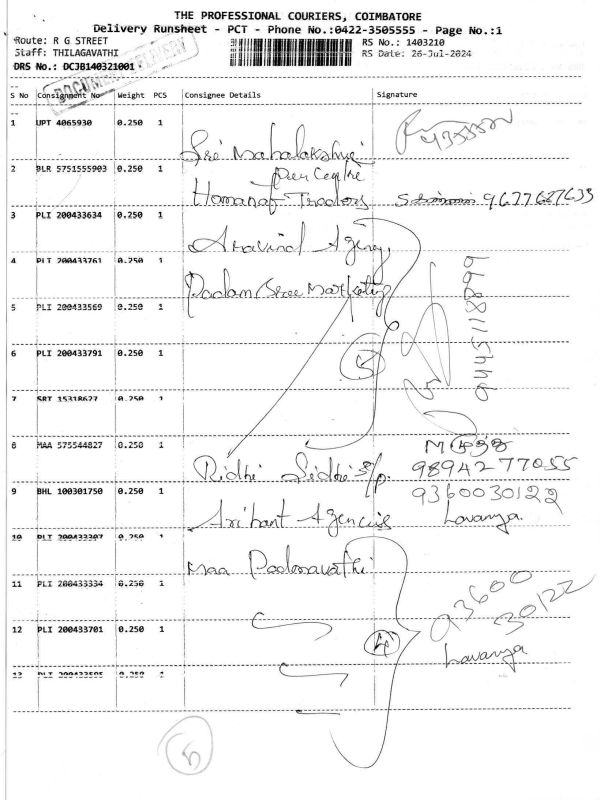 THE PROFESSIONAL COURIERS, COIMBATORE
Delivery Runsheet - PCT - Phone No.:0422-3505555 - Page No.:1
Route: R G STREET
RS No.: 1403210
Staff: THILAGAVATHI
RS Date: 26-Jul-2024
DRS No.: DCJB140321001
DOCUMENT DELIVERY
S No Consignment No Weight PCS Consignee Details Signature
1 UPT 4065930 0.250 1
Sri Mahalakshmi
Pen Centre
2 BLR 5751555903 0.250 1
Traders 9677627633
3 PLI 200433634 0.250 1
Aravind Agency
4 PLI 200433761 0.250 1
Padam Sree Marketing
5 PLI 200433569 0.250 1
5
6 PLI 200433791 0.250 1
7 SRT 15318627 0.250 1
8 MAA 575544827 0.250 1
Ridhi Sidhi
9894277055
9 BHL 100301750 0.250 1
9360030122
Arihant Agencies Lavanya.
10 PLI 200433307 0.250 1
Maa Padmavathi
11 PLI 200433334 0.250 1
93600
30122
12 PLI 200433701 0.250 1
4
Lavanya
13 PLI 200433595 0.250 1
5